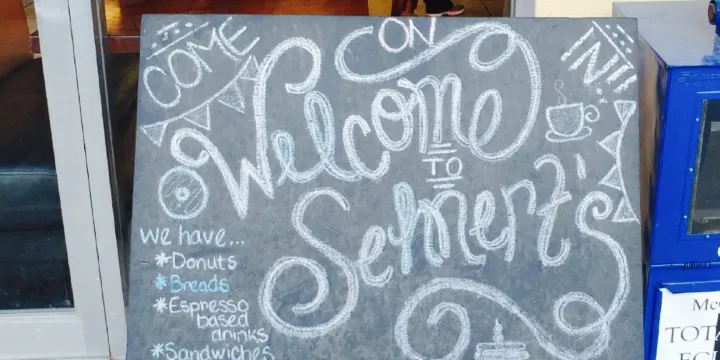 COME ON IN!!
Welcome
TO
Sehnert's
we have...
*Donuts
*Breads
*Espresso
based
drinks
*Sandwiches
TOTA